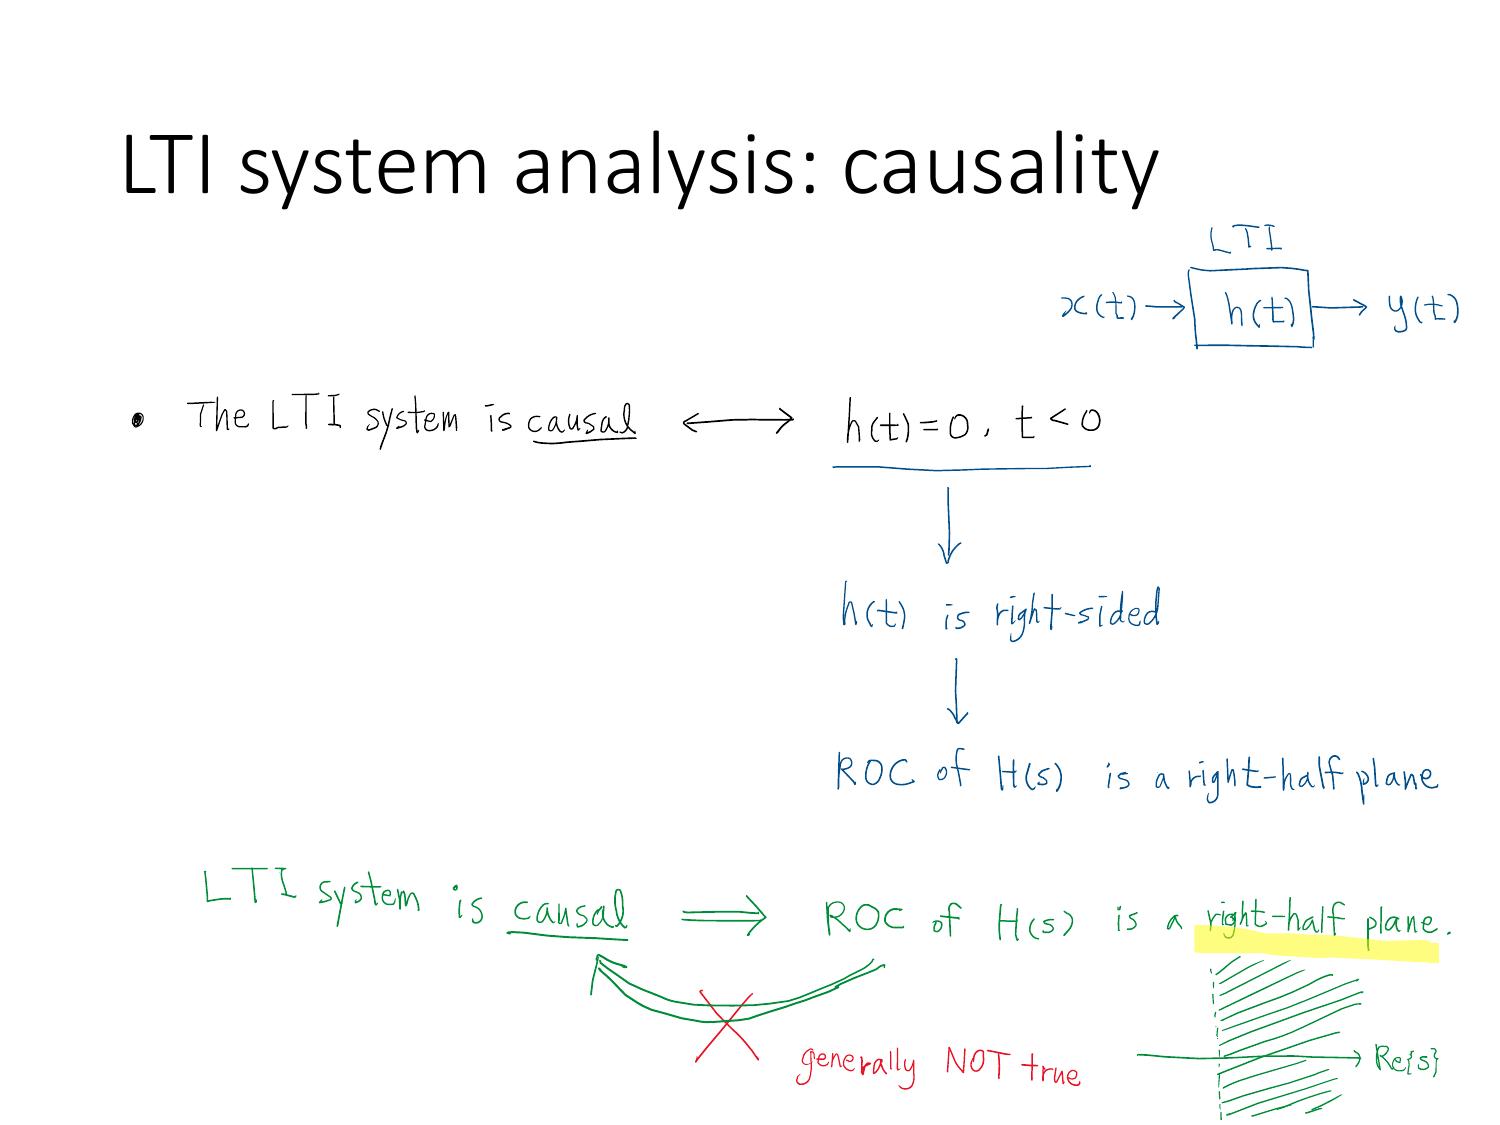 LTI system analysis: causality
LTI
x(t) → h(t) → y(t)
• The LTI system is causal ⟷ h(t) = 0, t < 0
↓
h(t) is right-sided
↓
ROC of H(s) is a right-half plane
LTI system is causal ⟹ ROC of H(s) is a right-half plane.
generally NOT true
Re{s}